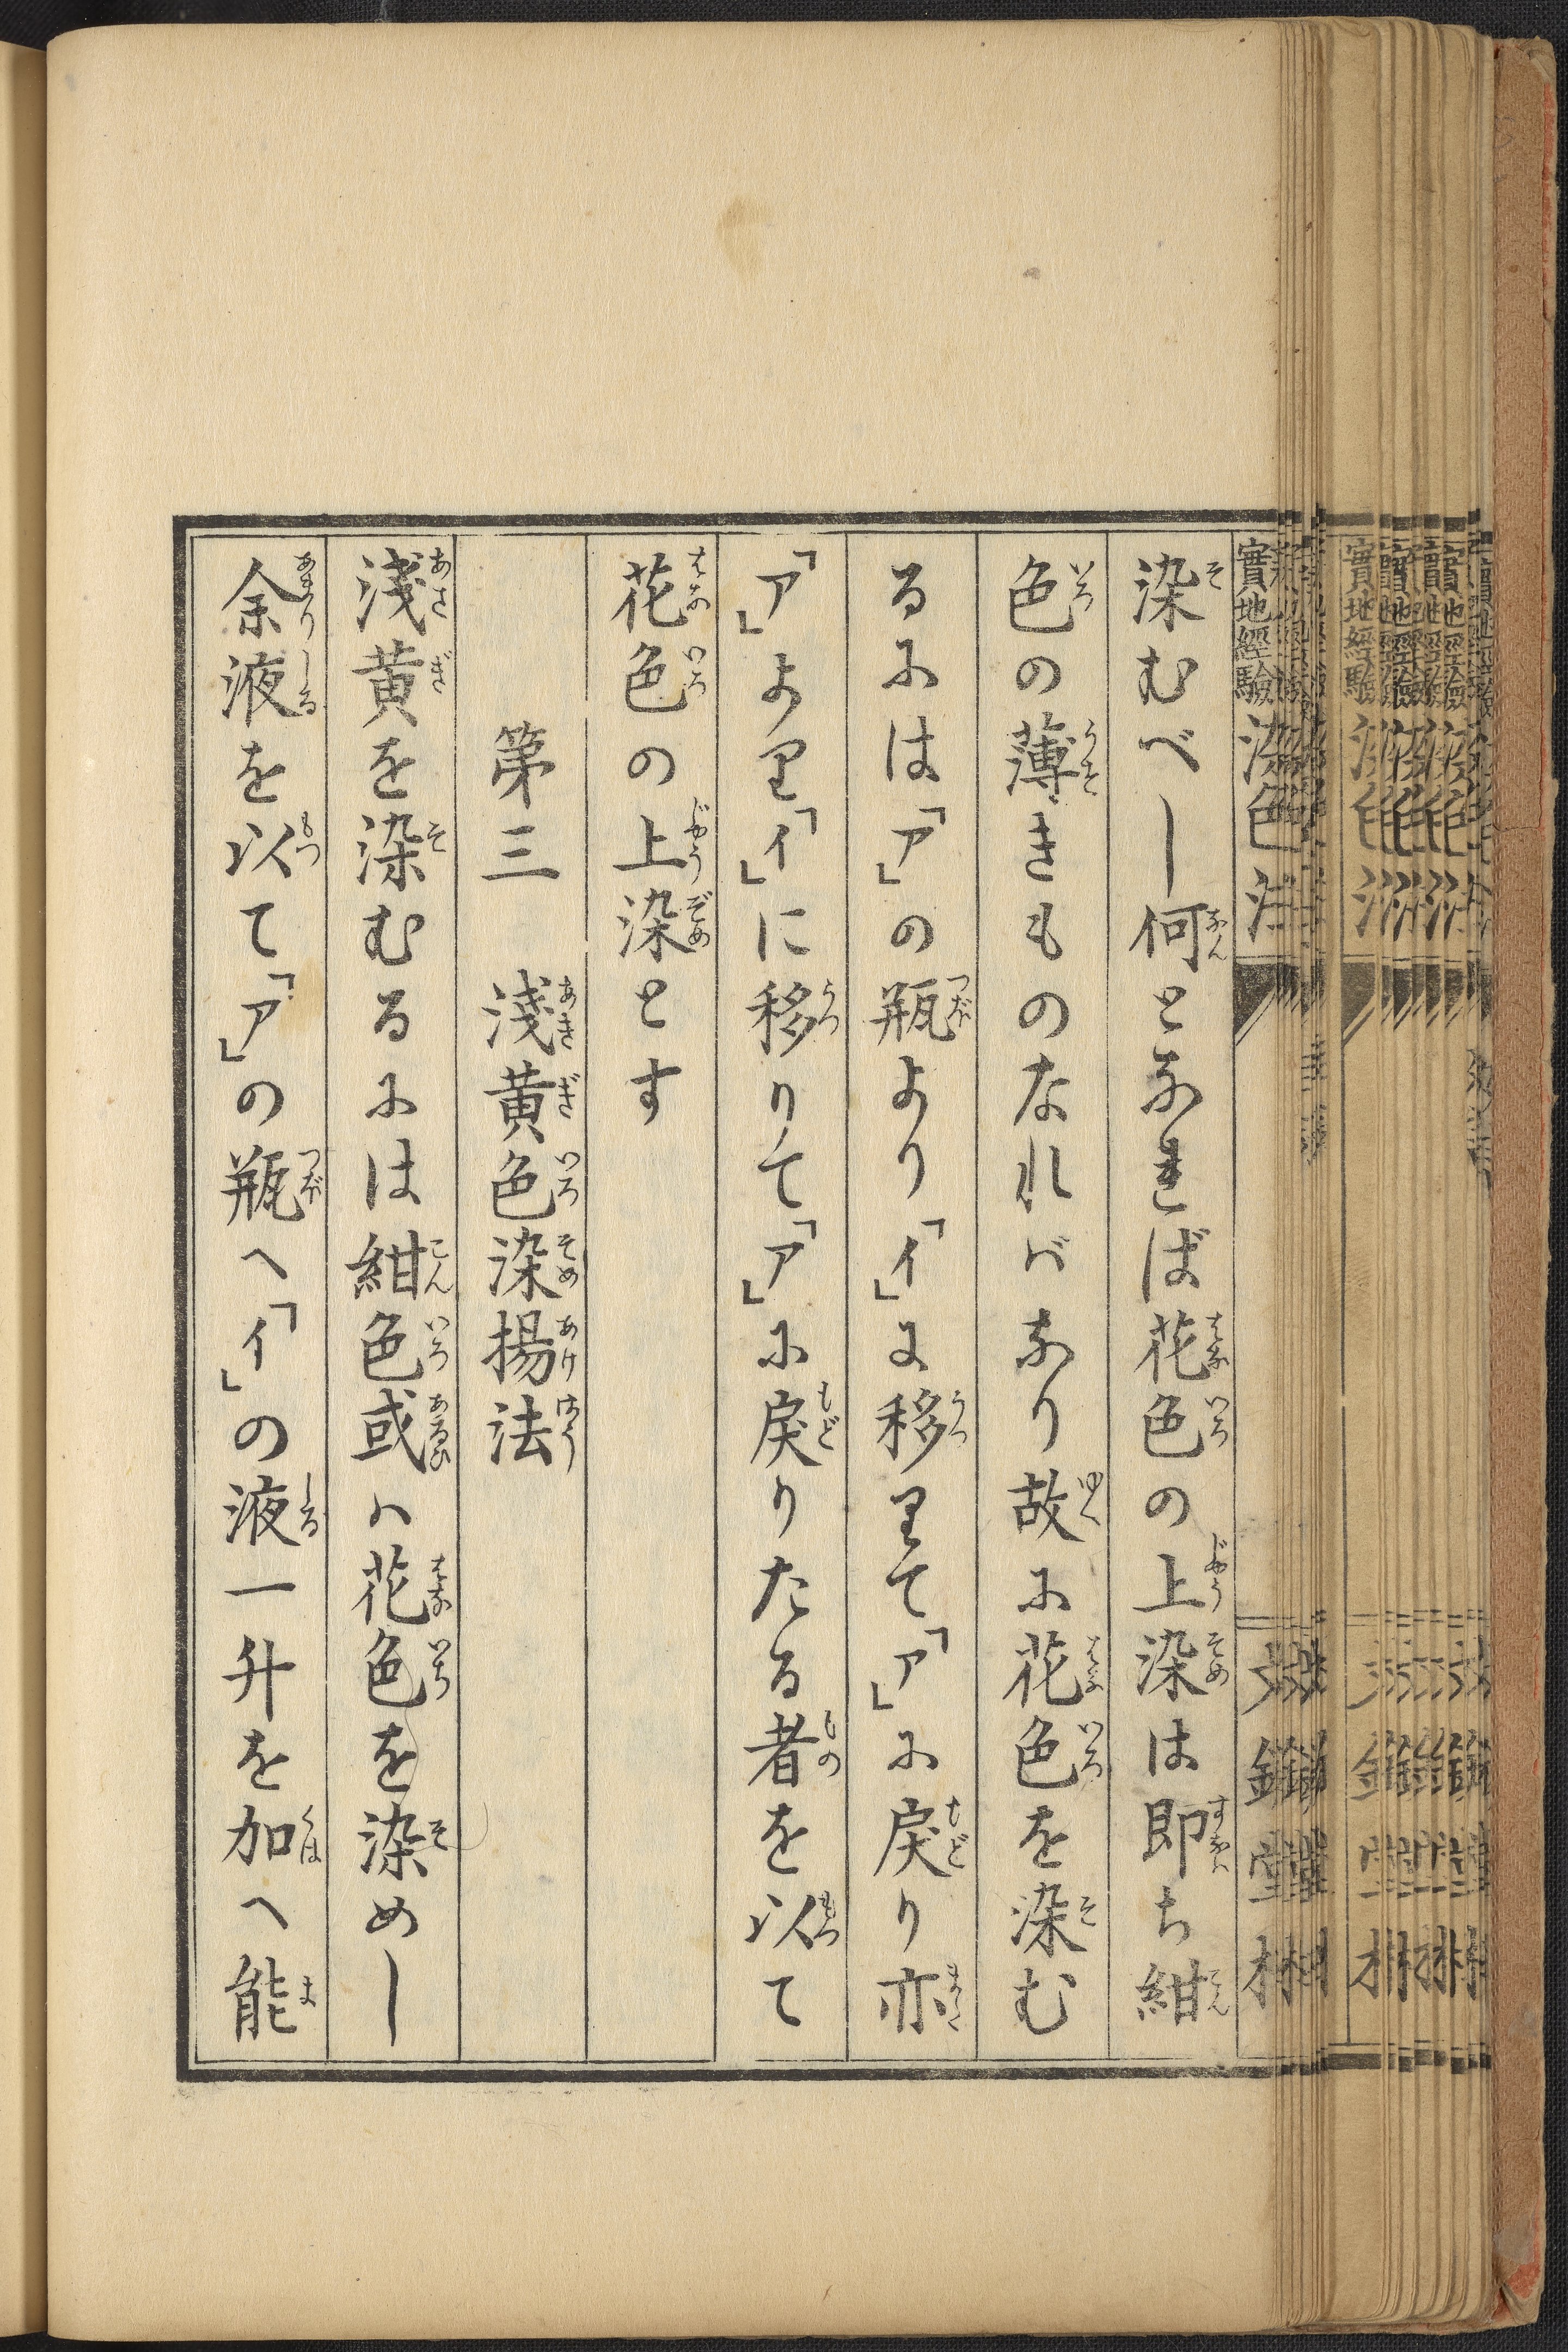 染むべし何となれば花色の上染は即ち紺
色の薄きものなればなり故に花色を染む
るには「ア」の瓶より「イ」に移りて「ア」に戻り亦
「ア」より「イ」に移りて「ア」に戻りたる者を以て
花色の上染とす
第三 淺黄色染揚法
淺黄を染むるには紺色或ハ花色を染めし
余液を以て「ア」の瓶へ「イ」の液一升を加へ能
實地經驗染色法